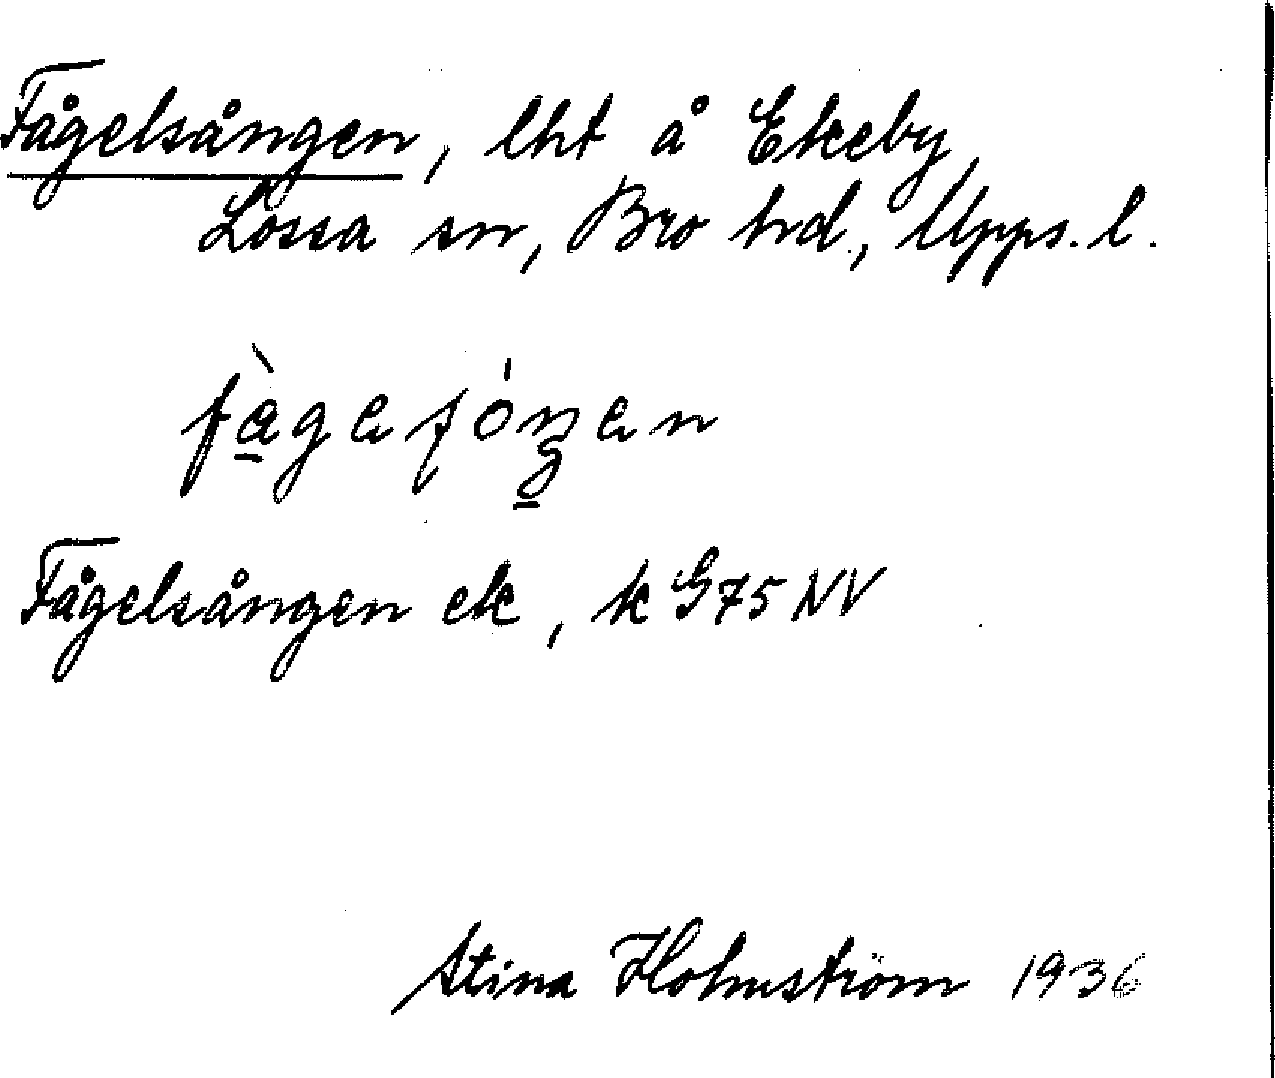 Fågelsången, lht å Ekeby,
Lossa sn, Bro hd., Upps. l.
Fågelsången ek, k G75 NV
Stina Holmström 1936